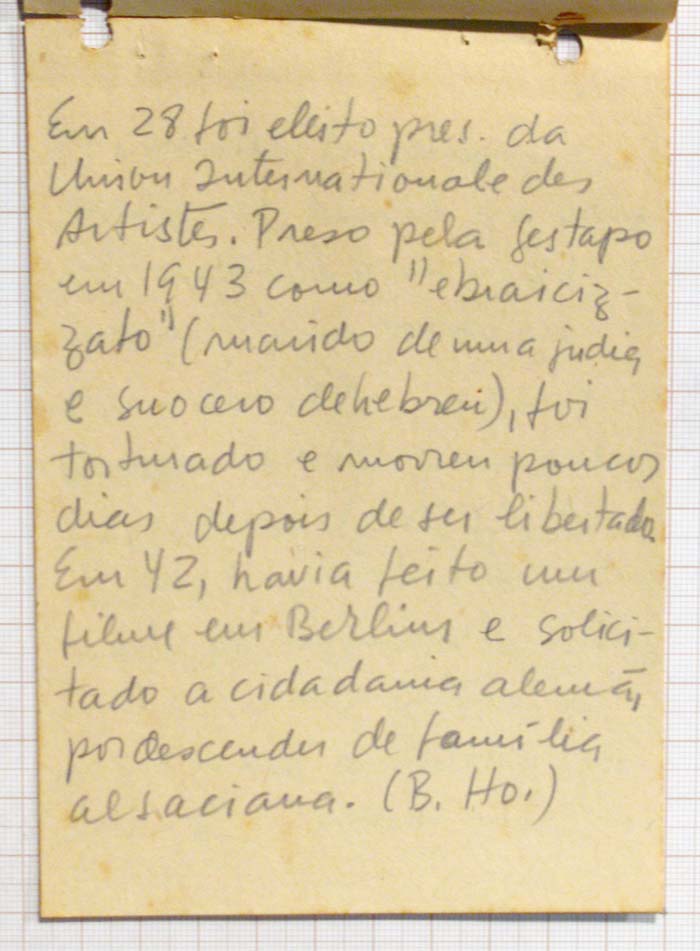 Em 28 foi eleito pres. da
Union Internationale des
Artistes. Preso pela gestapo
em 1943 como "ebraiciz-
zato" (marido de uma judia
e suocero de hebreu), foi
torturado e morreu poucos
dias depois de ser libertado.
Em 42, havia feito um
filme em Berlim e solici-
tado a cidadania alemã,
por descender de família
alsaciana. (B. Ho.)